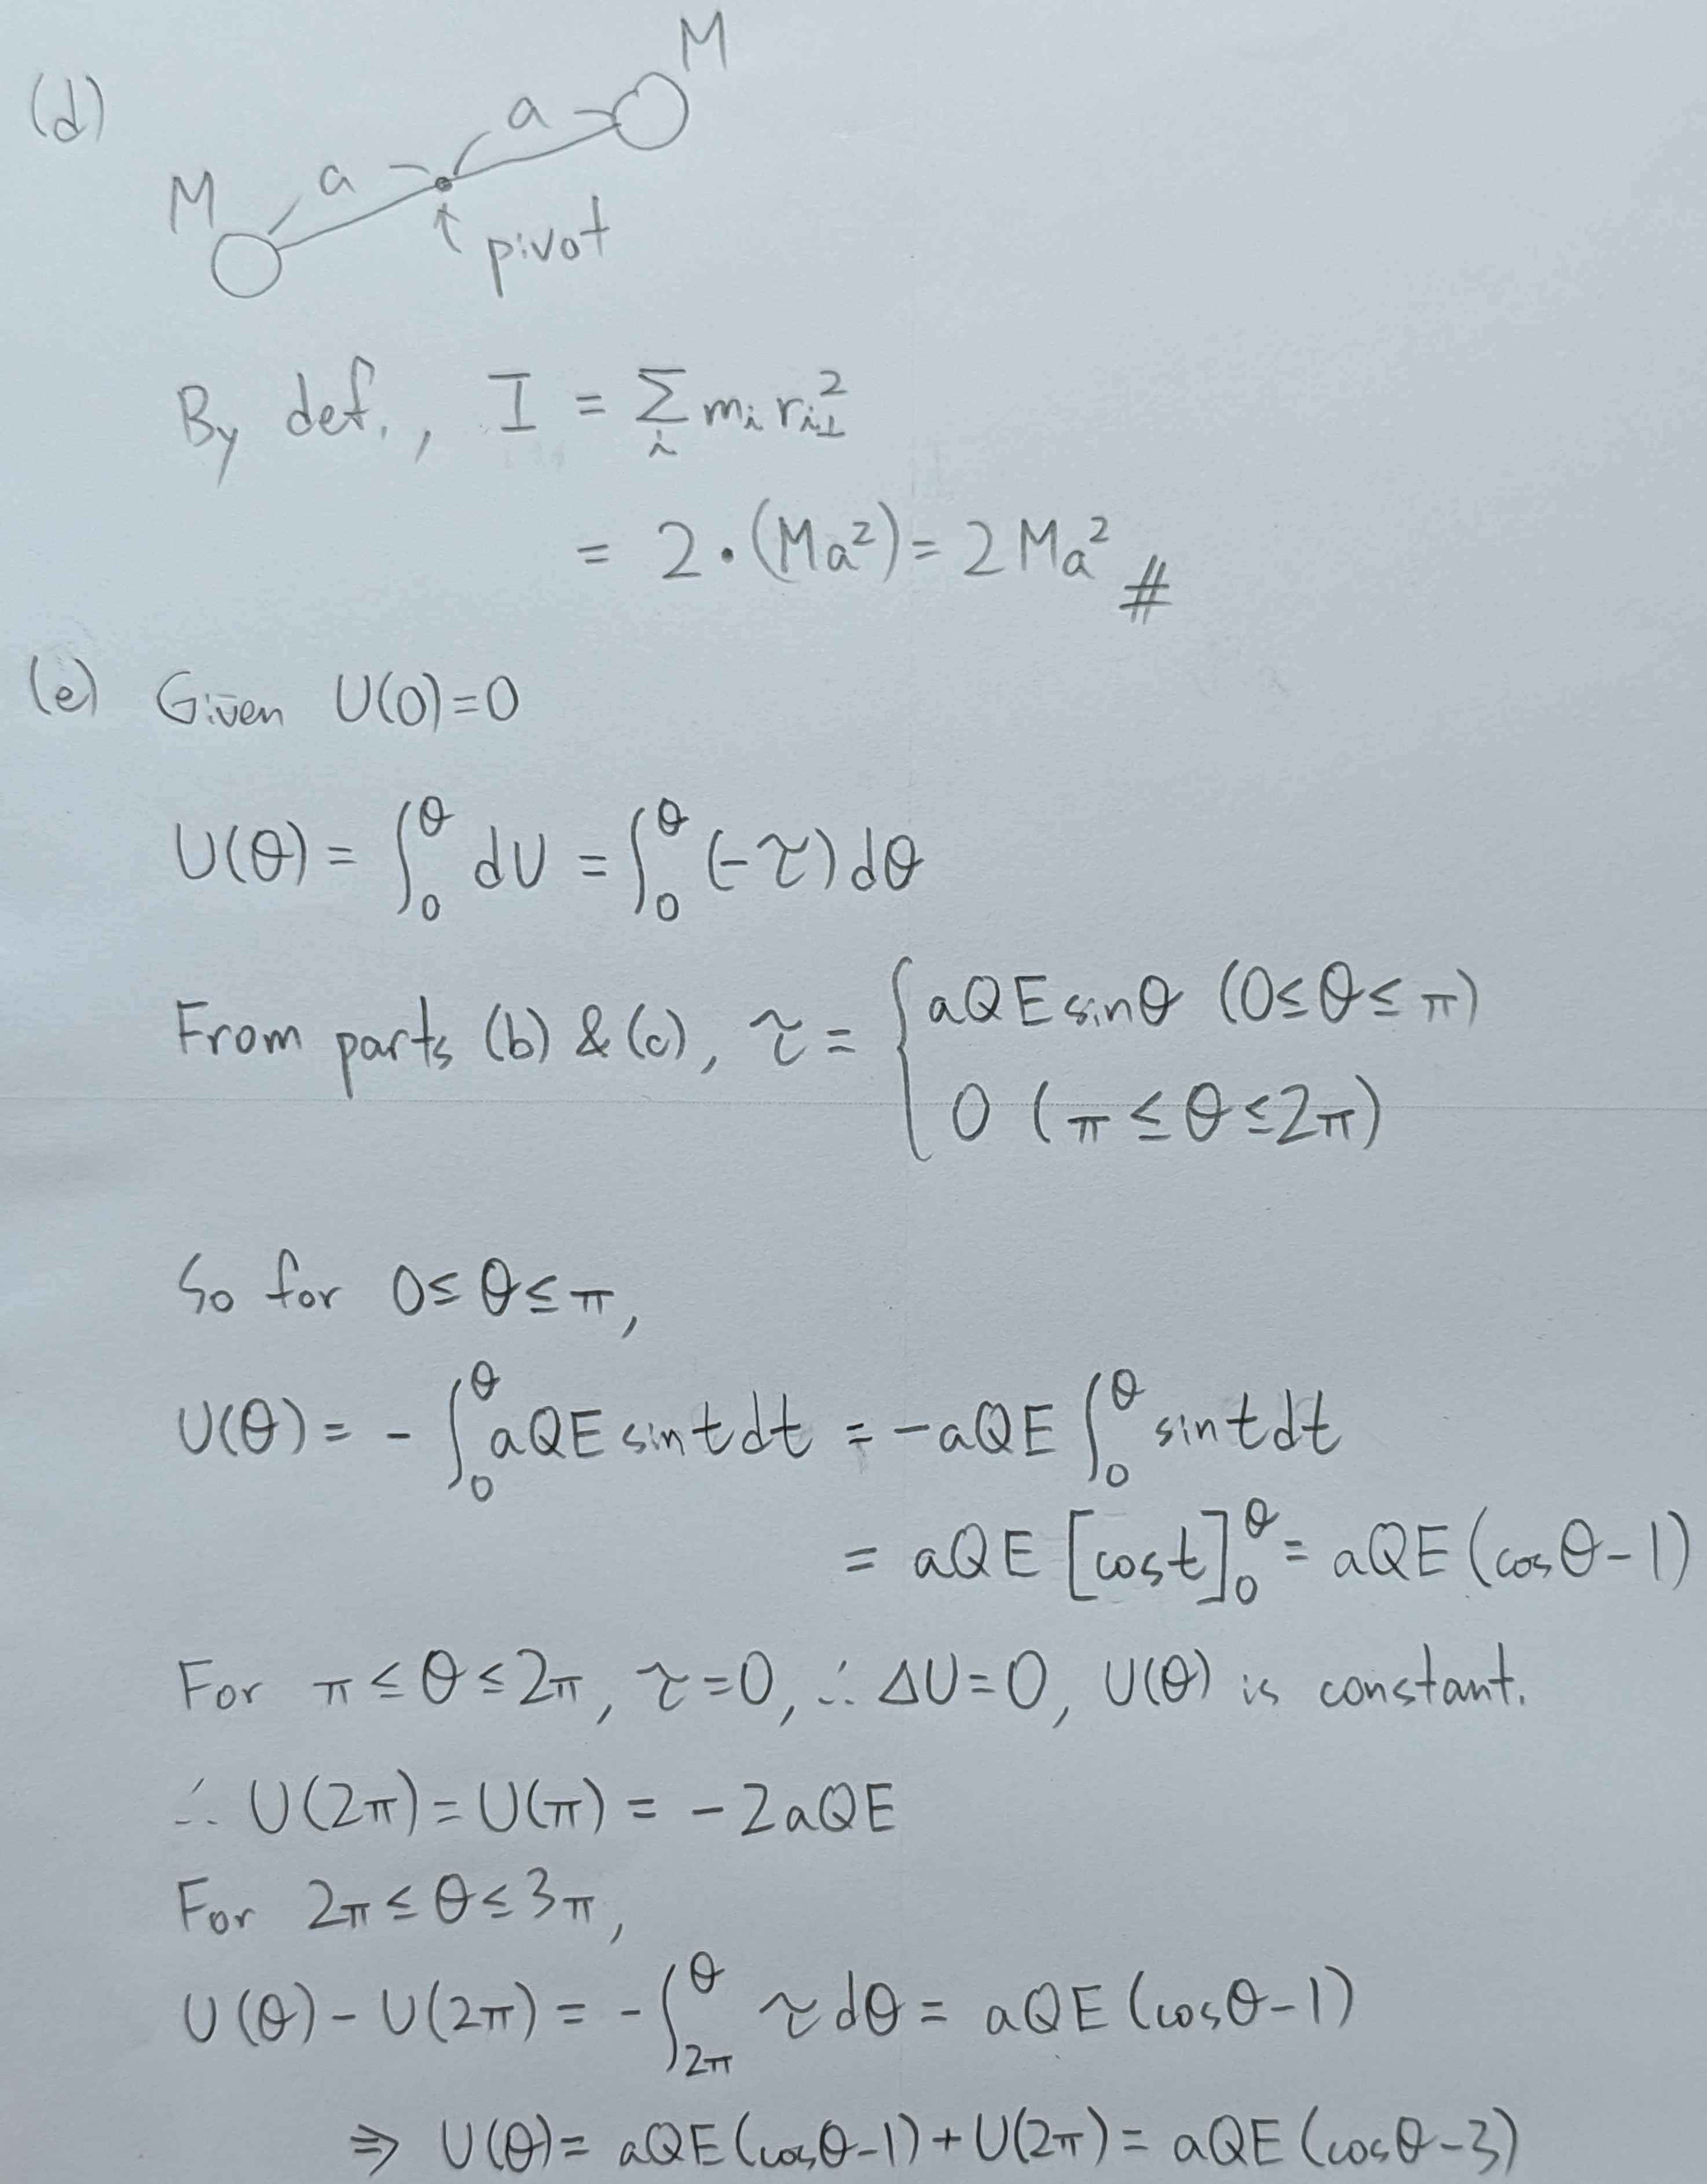 (d)
M
a
a
M
↑ pivot
By def., I = Σ_i m_i r_{i⊥}^2
= 2·(Ma²) = 2Ma² #
(e) Given U(0)=0
U(θ) = ∫_0^θ dU = ∫_0^θ (-τ)dθ
From parts (b) & (c), τ = { aQE sinθ (0≤θ≤π)
0 (π≤θ≤2π)
So for 0≤θ≤π,
U(θ) = -∫_0^θ aQE sint dt = -aQE ∫_0^θ sint dt
= aQE [cost]_0^θ = aQE (cosθ-1)
For π≤θ≤2π, τ=0, ∴ ΔU=0, U(θ) is constant.
∴ U(2π) = U(π) = -2aQE
For 2π≤θ≤3π,
U(θ) - U(2π) = -∫_{2π}^θ τ dθ = aQE (cosθ-1)
⇒ U(θ) = aQE (cosθ-1) + U(2π) = aQE (cosθ-3)